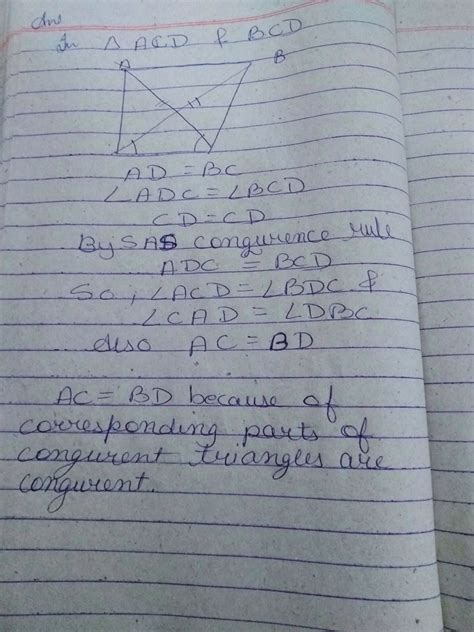 Ans
In △ ACD & BCD
A B
AD = BC
∠ADC = ∠BCD
CD = CD
By SAS congurence rule
ADC ≡ BCD
So, ∠ACD = ∠BDC &
∠CAD = ∠DBC
also AC = BD
AC = BD because of
corresponding parts of
congurent triangles are
congurent.